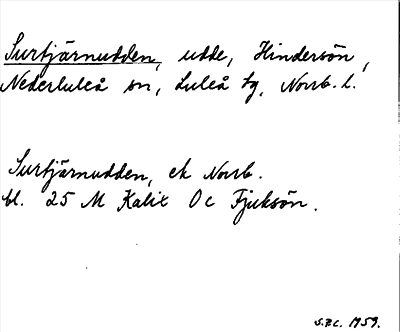 Surtjärnudden, udde, Hindersön,
Nederluleå sn, Luleå tg, Norrb. l.
Surtjärnudden, ek Norrb.
bl. 25 M Kalix 0 c Fjuksön.
S.F.C. 1959.